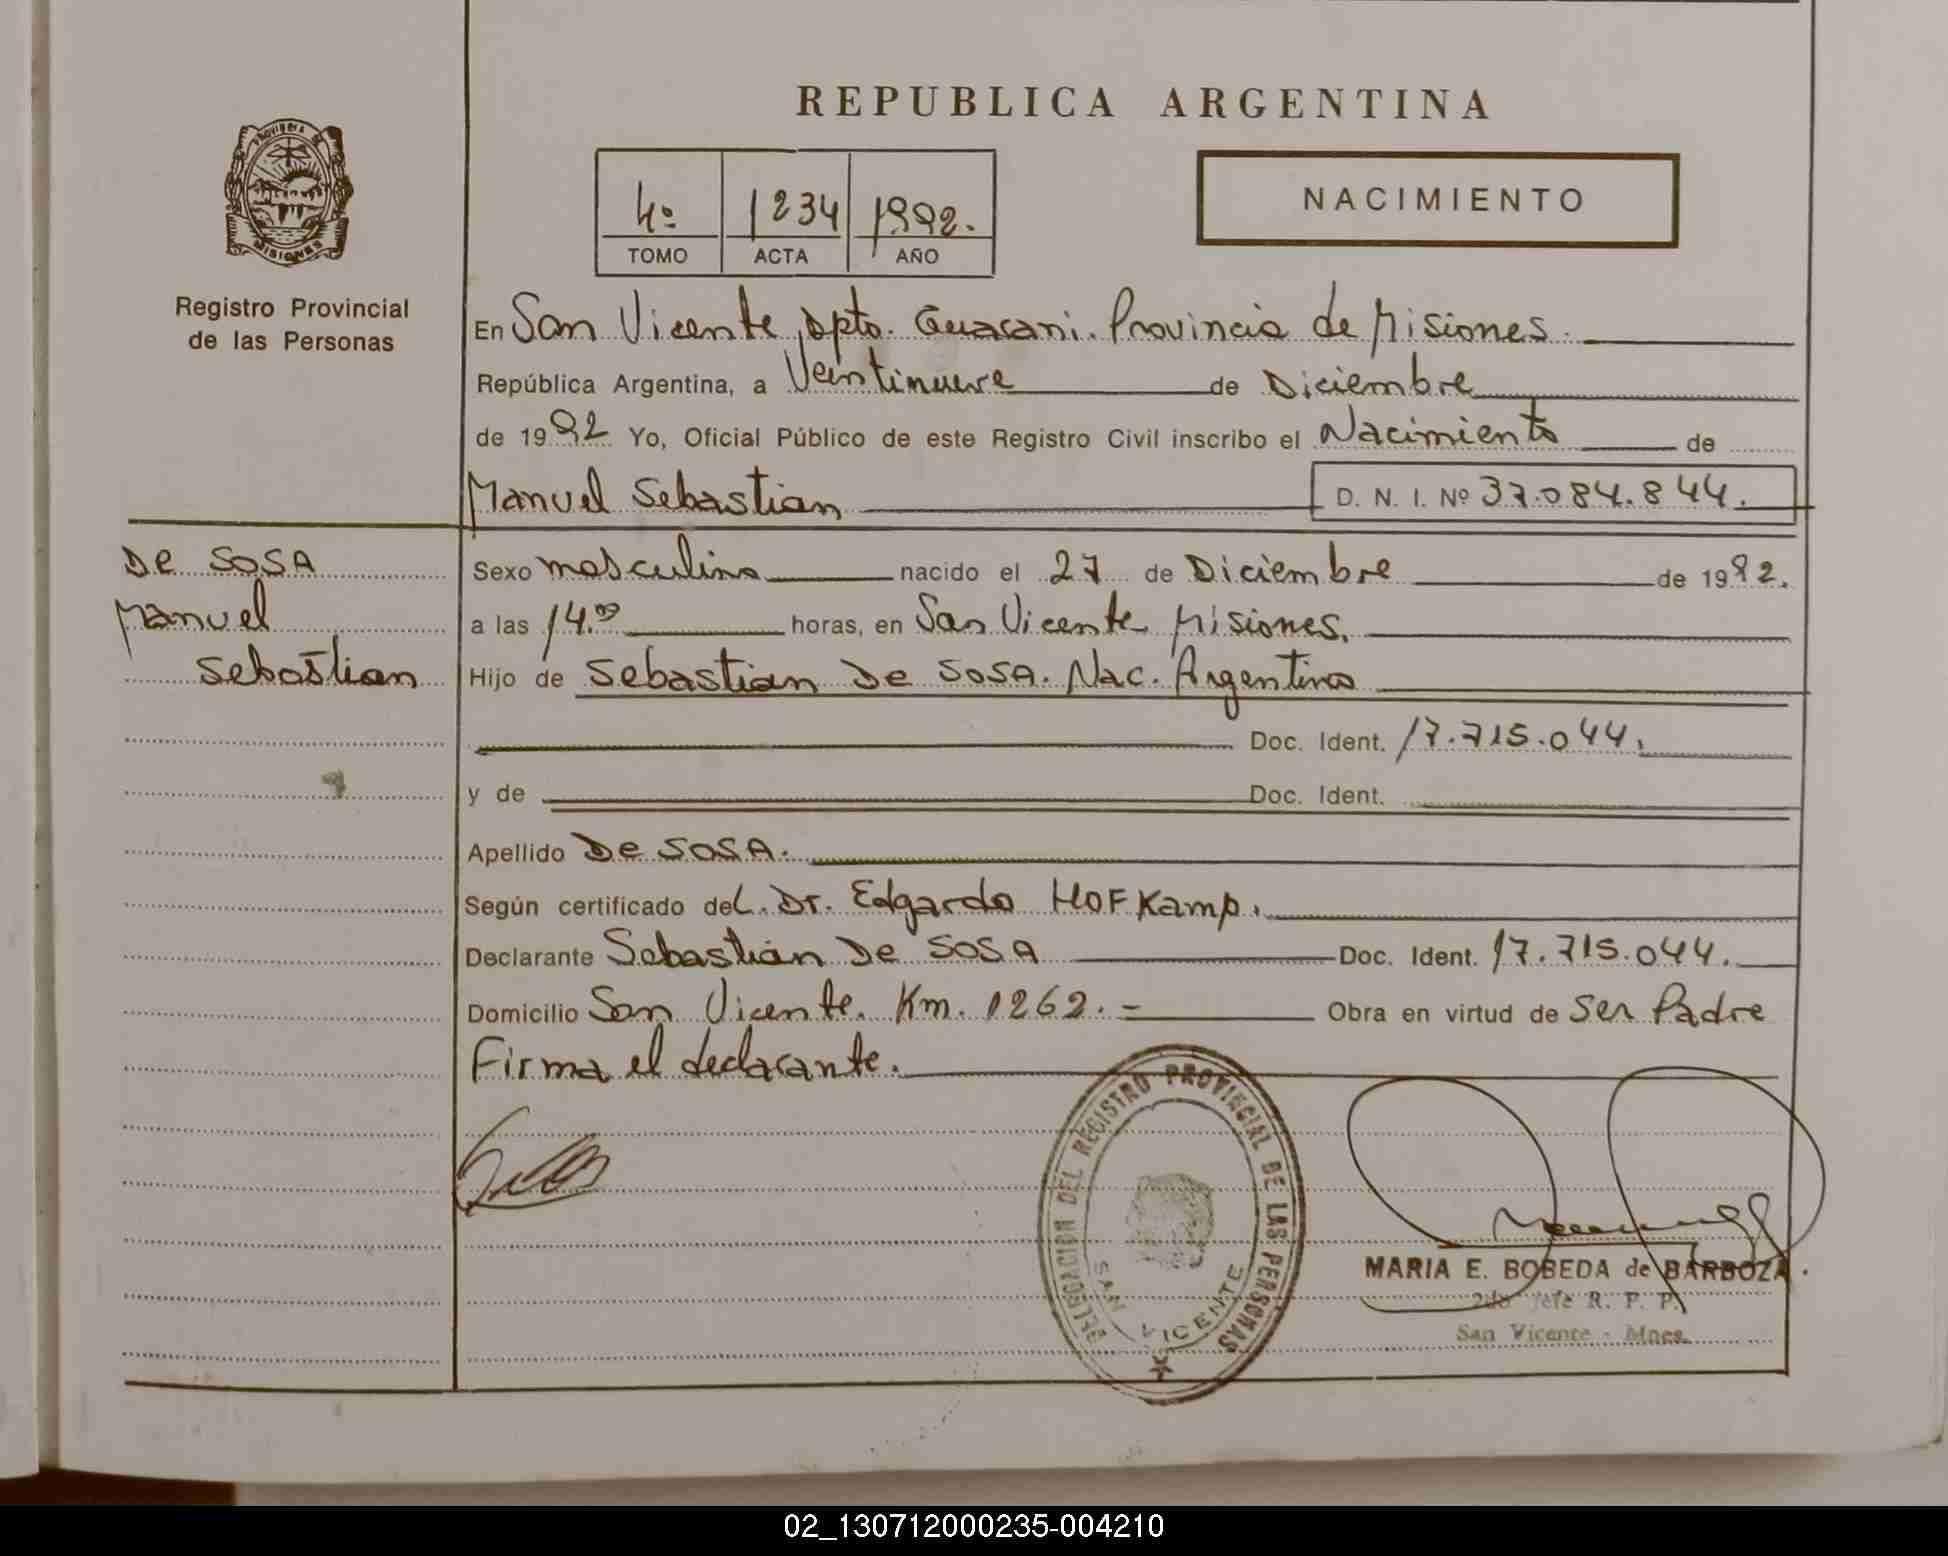 REPUBLICA ARGENTINA
PROVINCIA DE
MISIONES
Registro Provincial
de las Personas
4º 1234 1992.
TOMO ACTA AÑO
NACIMIENTO
En San Vicente, Dpto. Guarani. Provincia de Misiones.
República Argentina, a Veintinueve de Diciembre
de 1992 Yo, Oficial Público de este Registro Civil inscribo el Nacimiento de
Manuel Sebastian D. N. I. Nº 37.084.844.
De SOSA
Manuel
Sebastian
Sexo masculino nacido el 27 de Diciembre de 1992.
a las 14.00 horas, en San Vicente Misiones.
Hijo de Sebastian De SOSA. Nac. Argentino
Doc. Ident. 17.715.044.
y de Doc. Ident.
Apellido De SOSA.
Según certificado del. Dr. Edgardo HOFKamp.
Declarante Sebastián De SOSA Doc. Ident. 17.715.044.
Domicilio San Vicente. Km. 1262.- Obra en virtud de Ser Padre
Firma el declarante.
DELEGACION DEL REGISTRO PROVINCIAL DE LAS PERSONAS
SAN VICENTE
MARIA E. BOBEDA de BARBOZA.
2do Jefe R. P. P.
San Vicente - Mnes.
02_130712000235-004210